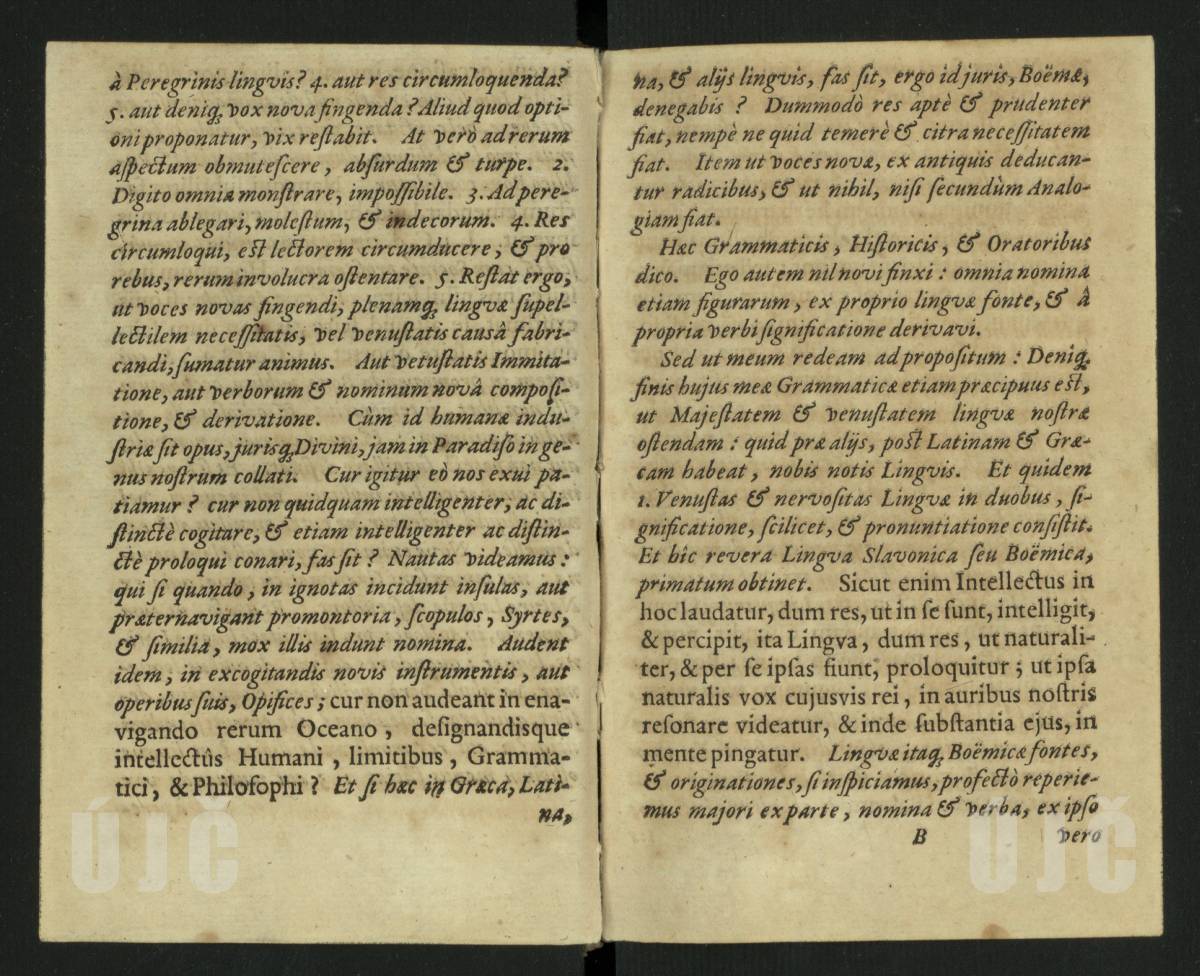 à Peregrinis lingvis? 4. aut res circumloquenda?
5. aut deniq; vox nova fingenda? Aliud quod opti-
oni proponatur, vix reſtabit. At verò ad rerum
aſpectum obmuteſcere, abſurdum & turpe. 2.
Digito omnia monſtrare, impoſſibile. 3. Ad pere-
grina ablegari, moleſtum, & indecorum. 4. Res
circumloqui, eſt lectorem circumducere, & pro
rebus, rerum involucra oſtentare. 5. Reſtat ergo,
ut voces novas fingendi, plenamq; lingvæ ſupel-
lectilem neceſſitatis, vel venuſtatis causâ fabri-
candi, ſumatur animus. Aut vetuſtatis Immita-
tione, aut verborum & nominum novâ compoſi-
tione, & derivatione. Cùm id humanæ indu-
ſtriæ ſit opus, jurisq; Divini, jam in Paradiſo in ge-
nus noſtrum collati. Cur igitur eò nos exui pa-
tiamur? cur non quidquam intelligenter, ac di-
ſtinctè cogitare, & etiam intelligenter ac diſtin-
ctè proloqui conari, fas ſit? Nautas videamus:
qui ſi quando, in ignotas incidunt inſulas, aut
præternavigant promontoria, ſcopulos, Syrtes,
& ſimilia, mox illis indunt nomina. Audent
idem, in excogitandis novis inſtrumentis, aut
operibus ſuis, Opifices; cur non audeant in ena-
vigando rerum Oceano, deſignandisque
intellectûs Humani, limitibus, Gramma-
tici, & Philoſophi? Et ſi hæc in Græca, Lati-
na,
na, & alijs lingvis, fas ſit, ergo id juris, Boëmæ,
denegabis? Dummodò res aptè & prudenter
fiat, nempè ne quid temerè & citra neceſſitatem
fiat. Item ut voces novæ, ex antiquis deducan-
tur radicibus, & ut nihil, niſi ſecundùm Analo-
giam fiat.
Hæc Grammaticis, Hiſtoricis, & Oratoribus
dico. Ego autem nil novi finxi: omnia nomina
etiam figurarum, ex proprio lingvæ fonte, & à
propria verbi ſignificatione derivavi.
Sed ut meum redeam ad propoſitum: Deniq;
finis hujus meæ Grammaticæ etiam præcipuus eſt,
ut Majeſtatem & venuſtatem lingvæ noſtræ
oſtendam: quid præ alijs, poſt Latinam & Græ-
cam habeat, nobis notis Lingvis. Et quidem
1. Venuſtas & nervoſitas Lingvæ in duobus, ſi-
gnificatione, ſcilicet, & pronuntiatione conſiſtit.
Et hîc revera Lingva Slavonica ſeu Boëmica,
primatum obtinet. Sicut enim Intellectus in
hoc laudatur, dum res, ut in ſe ſunt, intelligit,
& percipit, ita Lingva, dum res, ut naturali-
ter, & per ſe ipſas fiunt, proloquitur; ut ipſa
naturalis vox cujusvis rei, in auribus noſtris
reſonare videatur, & inde ſubſtantia ejus, in
mente pingatur. Lingvæ itaq; Boëmicæ fontes,
& originationes, ſi inſpiciamus, profectò reperie-
mus majori ex parte, nomina & verba, ex ipſo
B vero
ÚJČ
ÚJČ